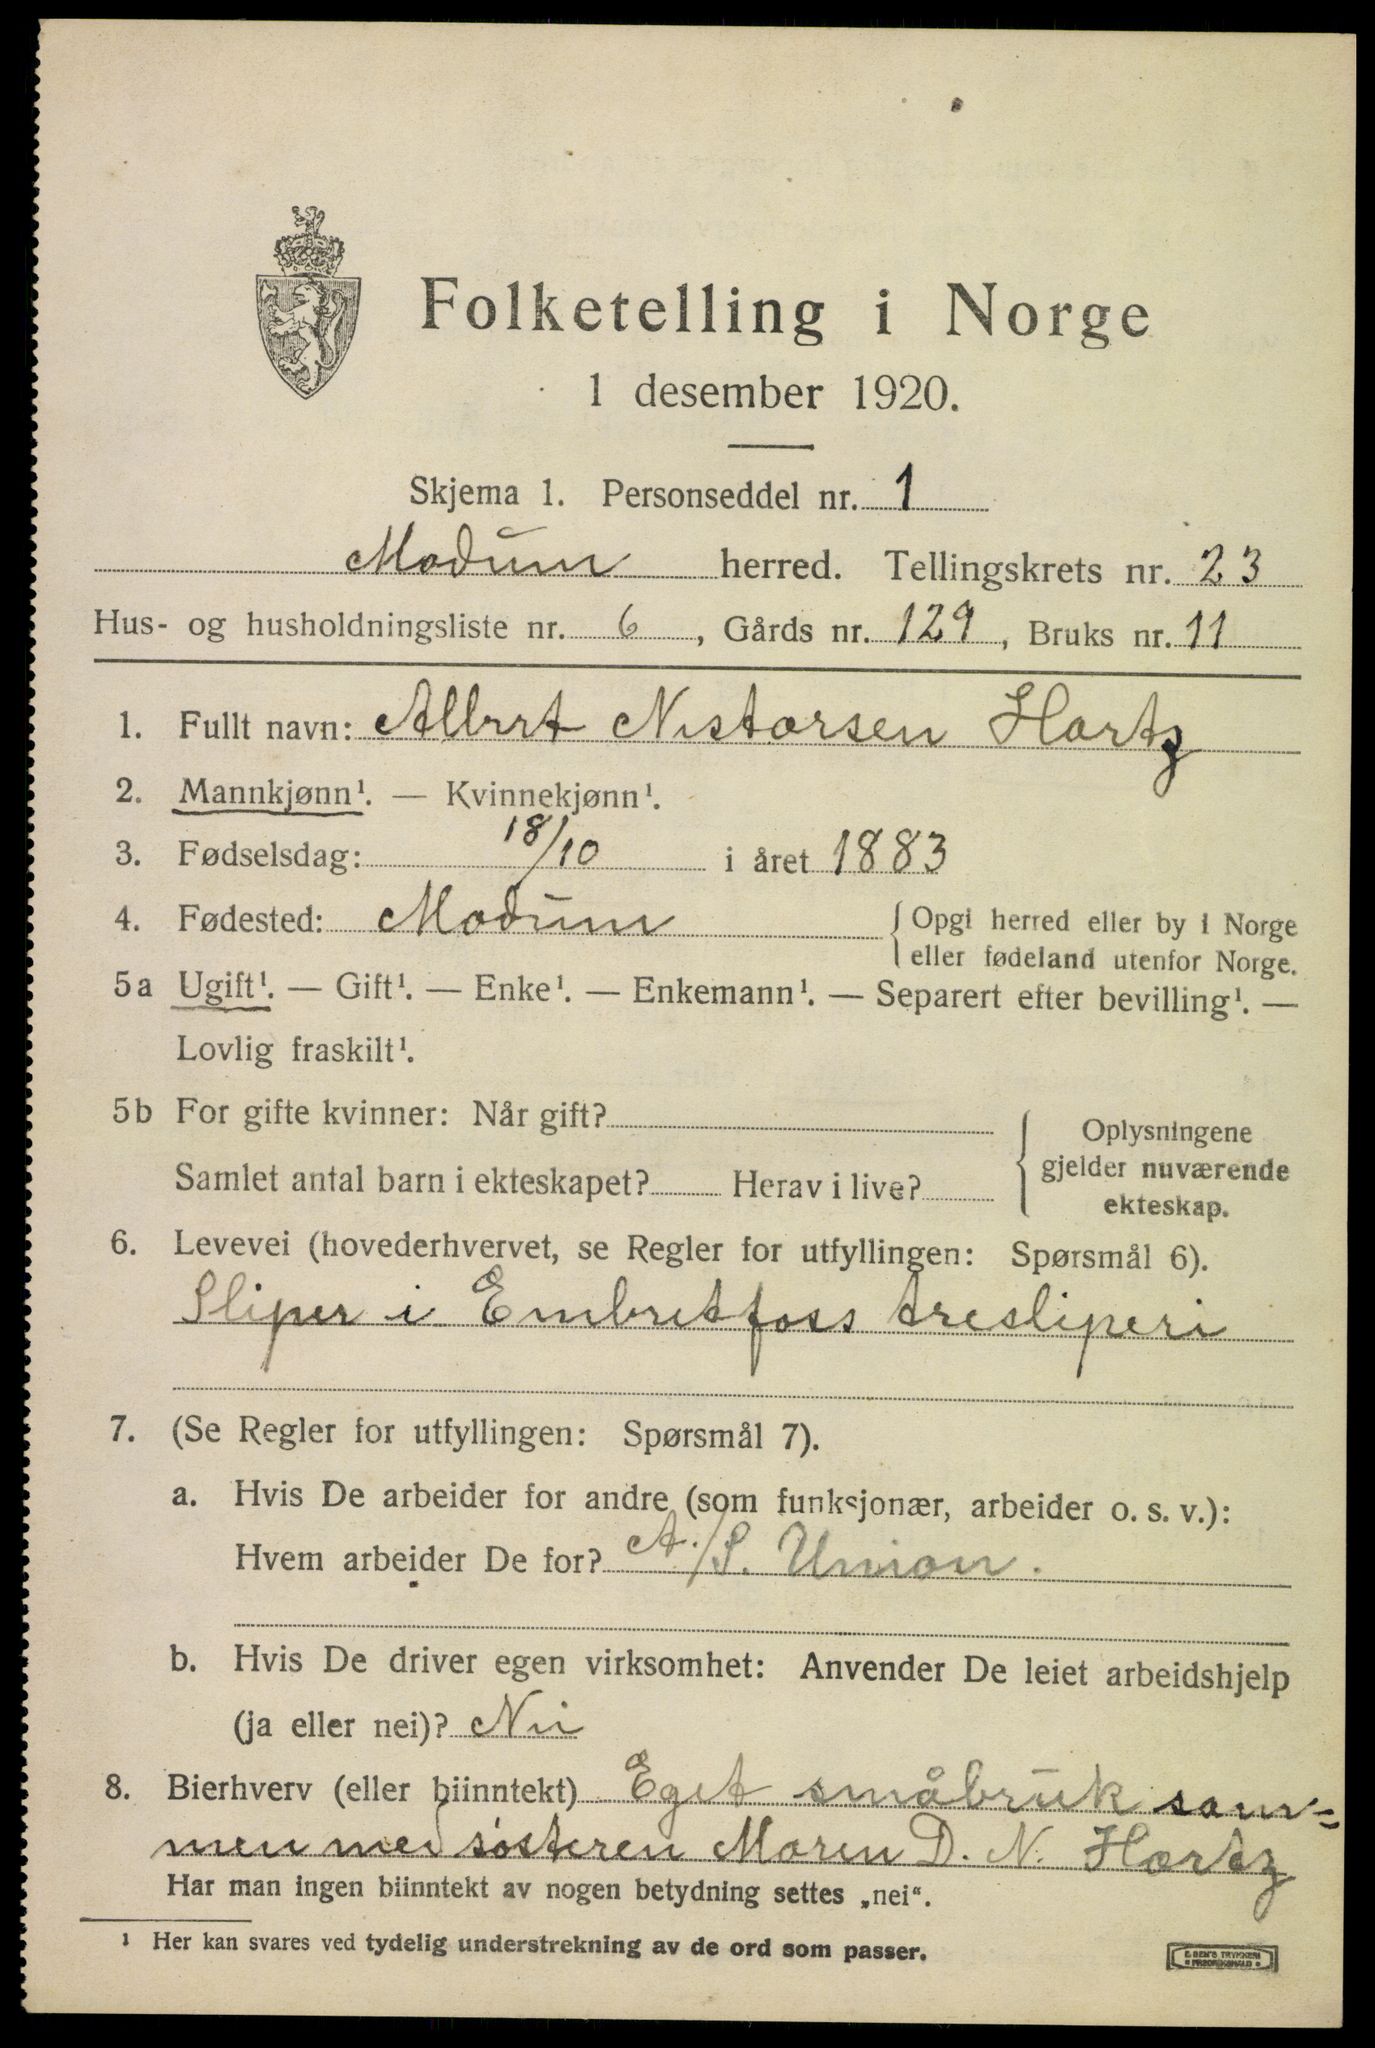 Folketelling i Norge
1 desember 1920.
Skjema 1. Personseddel nr. 1
Modum herred. Tellingskrets nr. 23
Hus- og husholdningsliste nr. 6, Gårds nr. 129, Bruks nr. 11
1. Fullt navn: Albert Nistorsen Hartz
2. Mannkjønn¹. — Kvinnekjønn¹.
3. Fødselsdag: 18/10 i året 1883
4. Fødested: Modum { Opgi herred eller by i Norge
eller fødeland utenfor Norge.
5a Ugift¹. — Gift¹. — Enke¹. — Enkemann¹. — Separert efter bevilling¹. —
Lovlig fraskilt¹.
5b For gifte kvinner: Når gift?
Samlet antal barn i ekteskapet? Herav i live?
{ Oplysningene
gjelder nuværende
ekteskap.
6. Levevei (hovederhvervet, se Regler for utfyllingen: Spørsmål 6).
Sliper i Embretfoss tresliperi
7. (Se Regler for utfyllingen: Spørsmål 7).
a. Hvis De arbeider for andre (som funksjonær, arbeider o. s. v.):
Hvem arbeider De for? A./S. Union.
b. Hvis De driver egen virksomhet: Anvender De leiet arbeidshjelp
(ja eller nei)? Nei
8. Bierhverv (eller biinntekt) Eget småbruk sam=
men med søsteren Maren D. N. Hartz
Har man ingen biinntekt av nogen betydning settes „nei“.
¹ Her kan svares ved tydelig understrekning av de ord som passer.